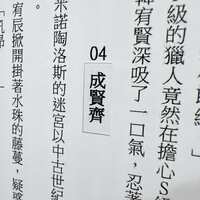 級的獵人竟然在擔心S級
宥賢深吸了一口氣，忍著
04
成賢齊
米諾陶洛斯的迷宮以中古世紀
宥辰掀開掛著水珠的藤蔓，疑